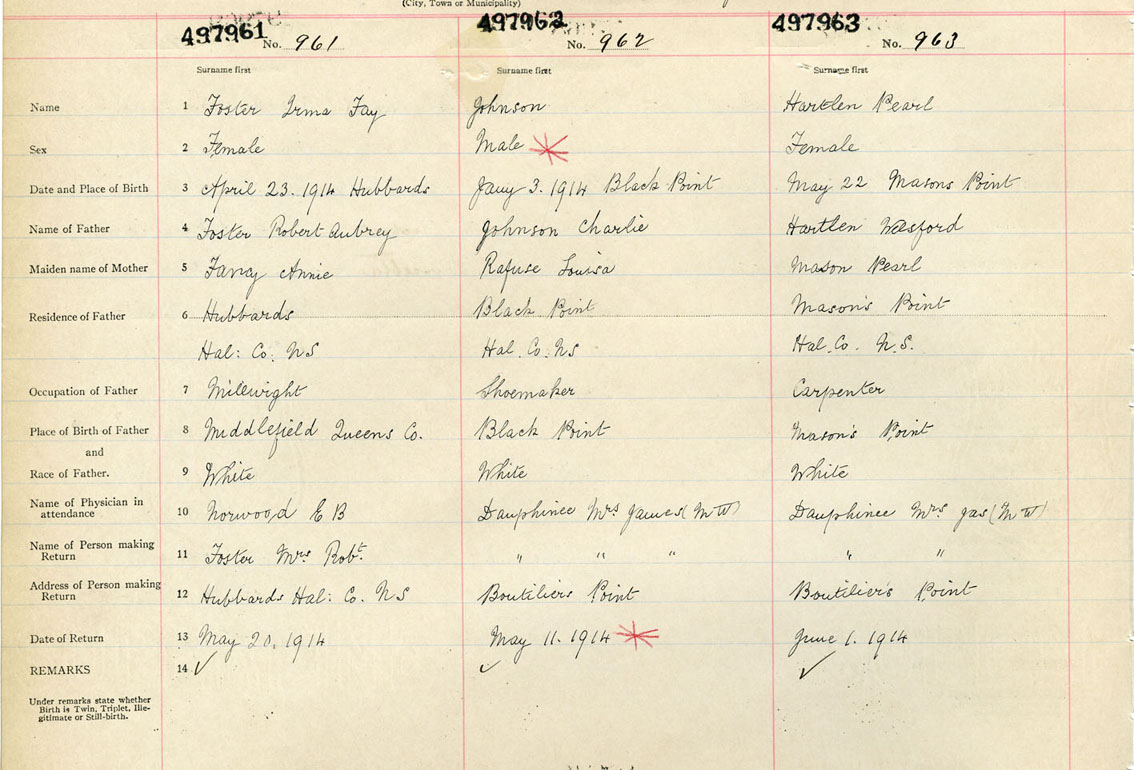 (City, Town or Municipality)
497961 No. 961 497962 No. 962 497963 No. 963
Surname first Surname first Surname first
Name 1 Foster Irma Fay Johnson Hartlen Pearl
Sex 2 Female Male Female
Date and Place of Birth 3 April 23. 1914 Hubbards Jany 3. 1914 Black Point May 22 Masons Point
Name of Father 4 Foster Robert Aubrey Johnson Charlie Hartlen
Maiden name of Mother 5 Fancy Annie Rafuse Louisa Mason Pearl
Residence of Father 6 Hubbards Black Point Mason's Point
Hal: Co. NS Hal. Co. NS Hal. Co. N.S.
Occupation of Father 7 Millwright Shoemaker Carpenter
Place of Birth of Father 8 Middlefield Queens Co. Black Point Mason's Point
and
Race of Father. 9 White White White
Name of Physician in
attendance 10 Norwood E B Dauphinee Mrs James (M W) Dauphinee Mrs Jas (M W)
Name of Person making
Return 11 Foster Mrs Robt. " " " " "
Address of Person making
Return 12 Hubbards Hal: Co. NS Boutiliers Point Boutilier's Point
Date of Return 13 May 20. 1914 May 11. 1914 June 1. 1914
REMARKS 14 ✓ ✓ ✓
Under remarks state whether
Birth is Twin, Triplet, Ille-
gitimate or Still-birth.